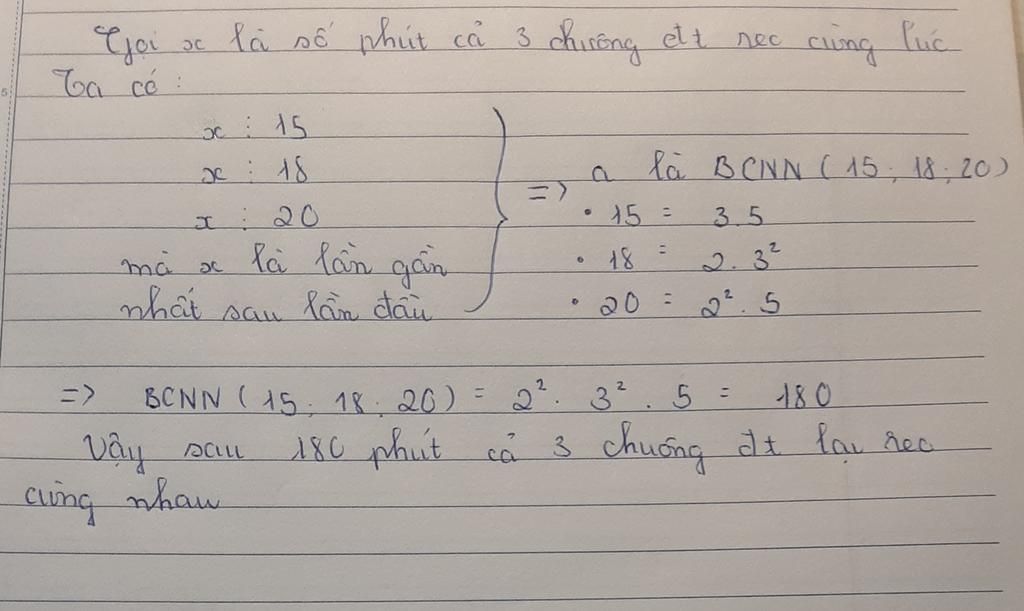 Gọi x là số phút cả 3 chuông đt reo cùng lúc
Ta có :
x ⋮ 15
x ⋮ 18
x ⋮ 20
mà x là lần gần
nhất sau lần đầu
=> a là BCNN ( 15 ; 18 ; 20 )
• 15 = 3.5
• 18 = 2. 3²
• 20 = 2² . 5
=> BCNN ( 15 ; 18 ; 20 ) = 2² . 3² . 5 = 180
Vậy sau 180 phút cả 3 chuông đt lại reo
cùng nhau